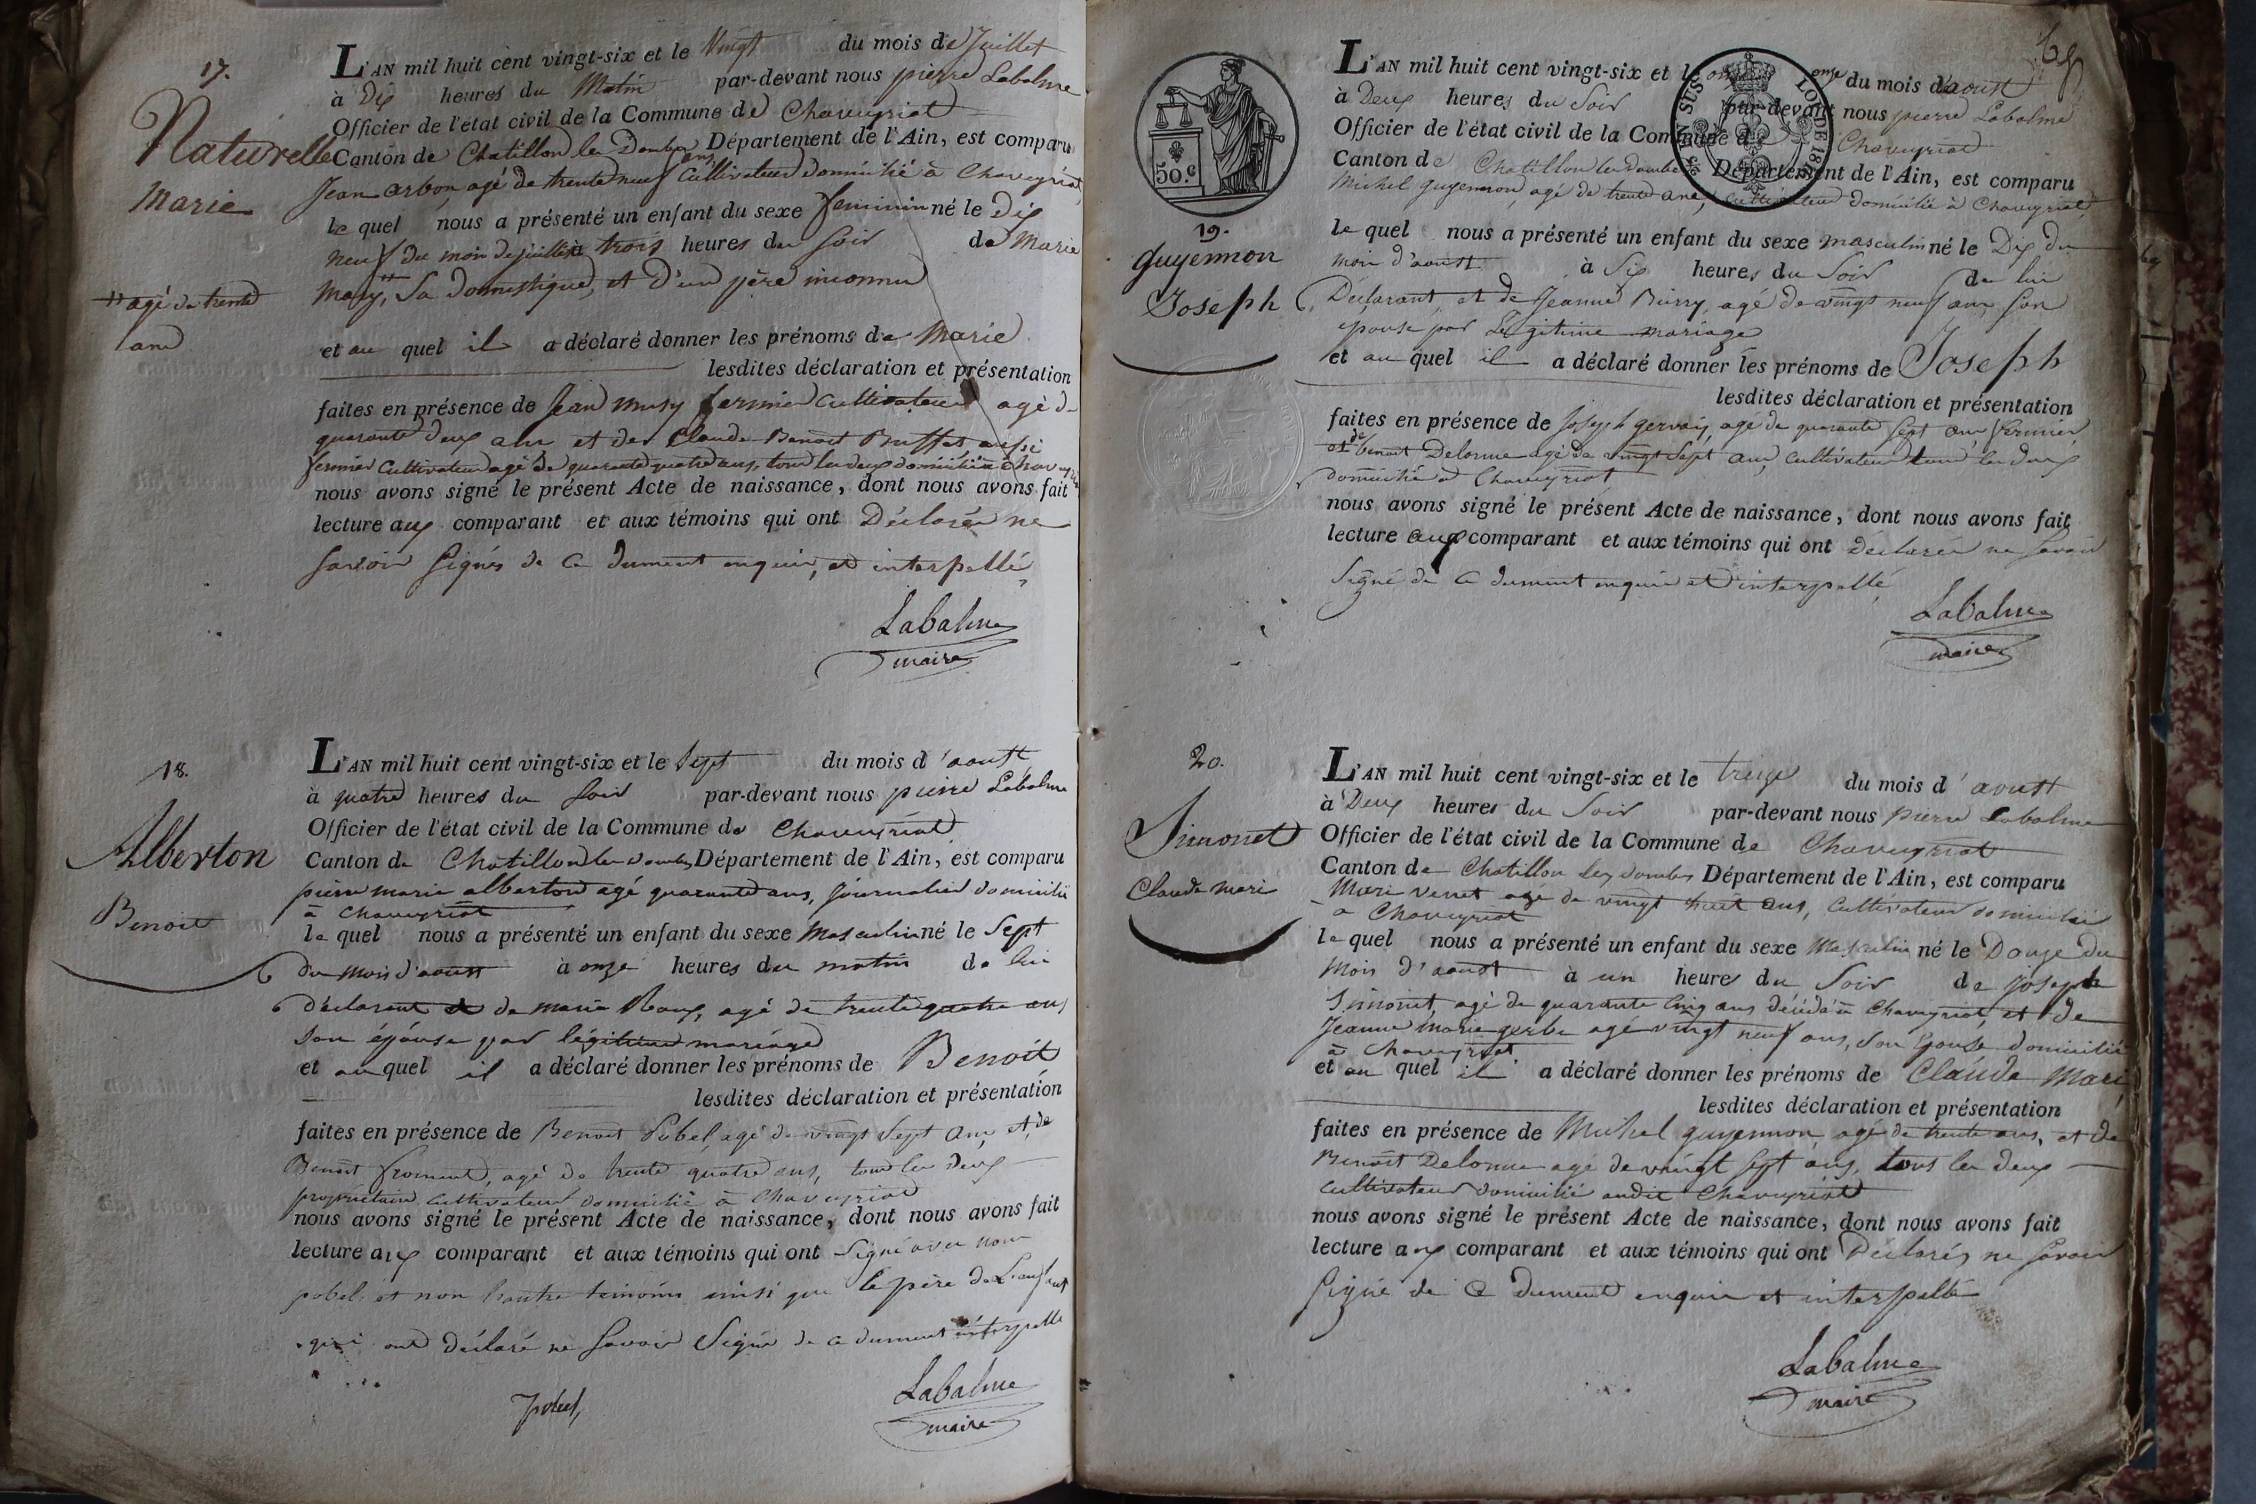 17.
Naturelle
Marie
L'AN mil huit cent vingt-six et le Vingt du mois de Juillet
à Dix heures du Matin par-devant nous pierre Labalme
Officier de l'état civil de la Commune de Chaveyriat
Canton de Chatillon les Dombes Département de l'Ain, est comparu
Jean arbon, agé de trente neuf ans Cultivateur domicilié à Chaveyriat,
le quel nous a présenté un enfant du sexe feminin né le Dix
neuf du mois de juillet à trois heures du soir de Marie
Mary, Sa domestique, et d'un père inconnu
agé de trente
ans
et au quel il a déclaré donner les prénoms de Marie
lesdites déclaration et présentation
faites en présence de Jean musy fermier Cultivateur agé de
quarante deux ans et de Claude Benoit Buffet aussi
fermier Cultivateur agé de quarante quatre ans, tous les deux domiciliés à Chaveyriat
nous avons signé le présent Acte de naissance, dont nous avons fait
lecture aux comparant et aux témoins qui ont Déclarés ne
savoir Signés de ce dument enquis, et interpellé
Labalme
maire
18.
Alberton
Benoit
L'AN mil huit cent vingt-six et le Sept du mois d'aoust
à quatre heures du Soir par-devant nous pierre Labalme
Officier de l'état civil de la Commune de Chaveyriat
Canton de Chatillon les Dombes Département de l'Ain, est comparu
pierre marie alberton agé quarante ans, journalier domicilié
à Chaveyriat
le quel nous a présenté un enfant du sexe Masculin né le Sept
du mois d'aoust à onze heures du matin de lui
déclarant et de marie Roux, agé de trente quatre ans
son épouse par légitime mariage
et au quel il a déclaré donner les prénoms de Benoit
lesdites déclaration et présentation
faites en présence de Benoit Pobel, agé de vingt Sept ans, et de
Benoit froment, agé de trente quatre ans, tous les deux
propriétaire cultivateur domicilié à Chaveyriat
nous avons signé le présent Acte de naissance, dont nous avons fait
lecture aux comparant et aux témoins qui ont Signé avec nous
pobel et non l'autre temoins ainsi que le père de L'enfant
qui ont déclaré ne Savoir Signé de ce dument interpellé
pobel,
Labalme
maire
69
50.c
LOI DE 18
19.
guyennon
Joseph
L'AN mil huit cent vingt-six et le onze du mois d'aoust
à Deux heures du Soir par-devant nous pierre Labalme
Officier de l'état civil de la Commune de Chaveyriat
Canton de Chatillon les Dombes Département de l'Ain, est comparu
Michel guyennon, agé de trente ans, Cultivateur domicilié à Chaveyriat,
le quel nous a présenté un enfant du sexe masculin né le Dix du
mois d'aoust à Six heures du Soir de lui
Déclarant et de Jeanne Burry, agé de vingt neuf ans Son
épouse par Légitime mariage
et au quel il a déclaré donner les prénoms de Joseph
lesdites déclaration et présentation
faites en présence de Joseph gervais, agé de quarante Sept ans, fermier,
et de benoit Delorme agé de vingt Sept ans, cultivateur tous les deux
domicilié à Chaveyriat
nous avons signé le présent Acte de naissance, dont nous avons fait
lecture aux comparant et aux témoins qui ont déclarés ne Savoir
Signé de ce dument enquis et interpellé,
Labalme
maire
20.
Simonet
Claude mari
L'AN mil huit cent vingt-six et le treize du mois d'aoust
à Deux heures du Soir par-devant nous pierre Labalme
Officier de l'état civil de la Commune de Chaveyriat
Canton de Chatillon les Dombes Département de l'Ain, est comparu
Marie venet agé de vingt huit ans, Cultivateur domicilié
à Chaveyriat
le quel nous a présenté un enfant du sexe Masculin né le Douze du
mois d'aoust à un heure du Soir de joseph
Simonet, agé de quarante Cinq ans décédé à Chaveyriat, et de
Jeanne marie gerbe agé vingt neuf ans, Son Epouse domicilié
à Chaveyriat
et au quel il a déclaré donner les prénoms de Claude Mari,
lesdites déclaration et présentation
faites en présence de Michel guyennon, agé de trente ans, et de
Benoit Delorme agé de vingt Sept ans, tous les deux
Cultivateur domicilié audit Chaveyriat
nous avons signé le présent Acte de naissance, dont nous avons fait
lecture aux comparant et aux témoins qui ont Déclarés ne Savoir
Signé de ce dument enquis et interpellé
Labalme
maire